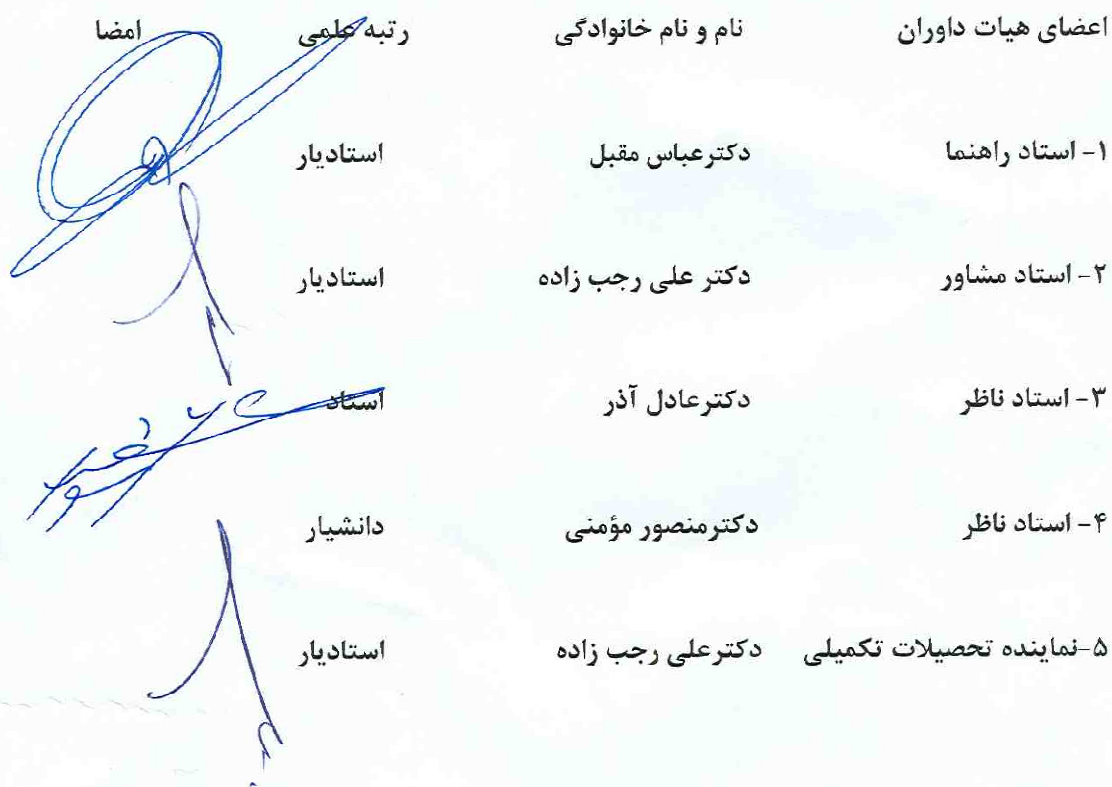 اعضای هیات داوران نام و نام خانوادگی رتبه علمی امضا
۱- استاد راهنما دکترعباس مقبل استادیار
۲- استاد مشاور دکتر علی رجب زاده استادیار
۳- استاد ناظر دکترعادل آذر استاد
۴- استاد ناظر دکترمنصور مؤمنی دانشیار
۵-نماینده تحصیلات تکمیلی دکترعلی رجب زاده استادیار